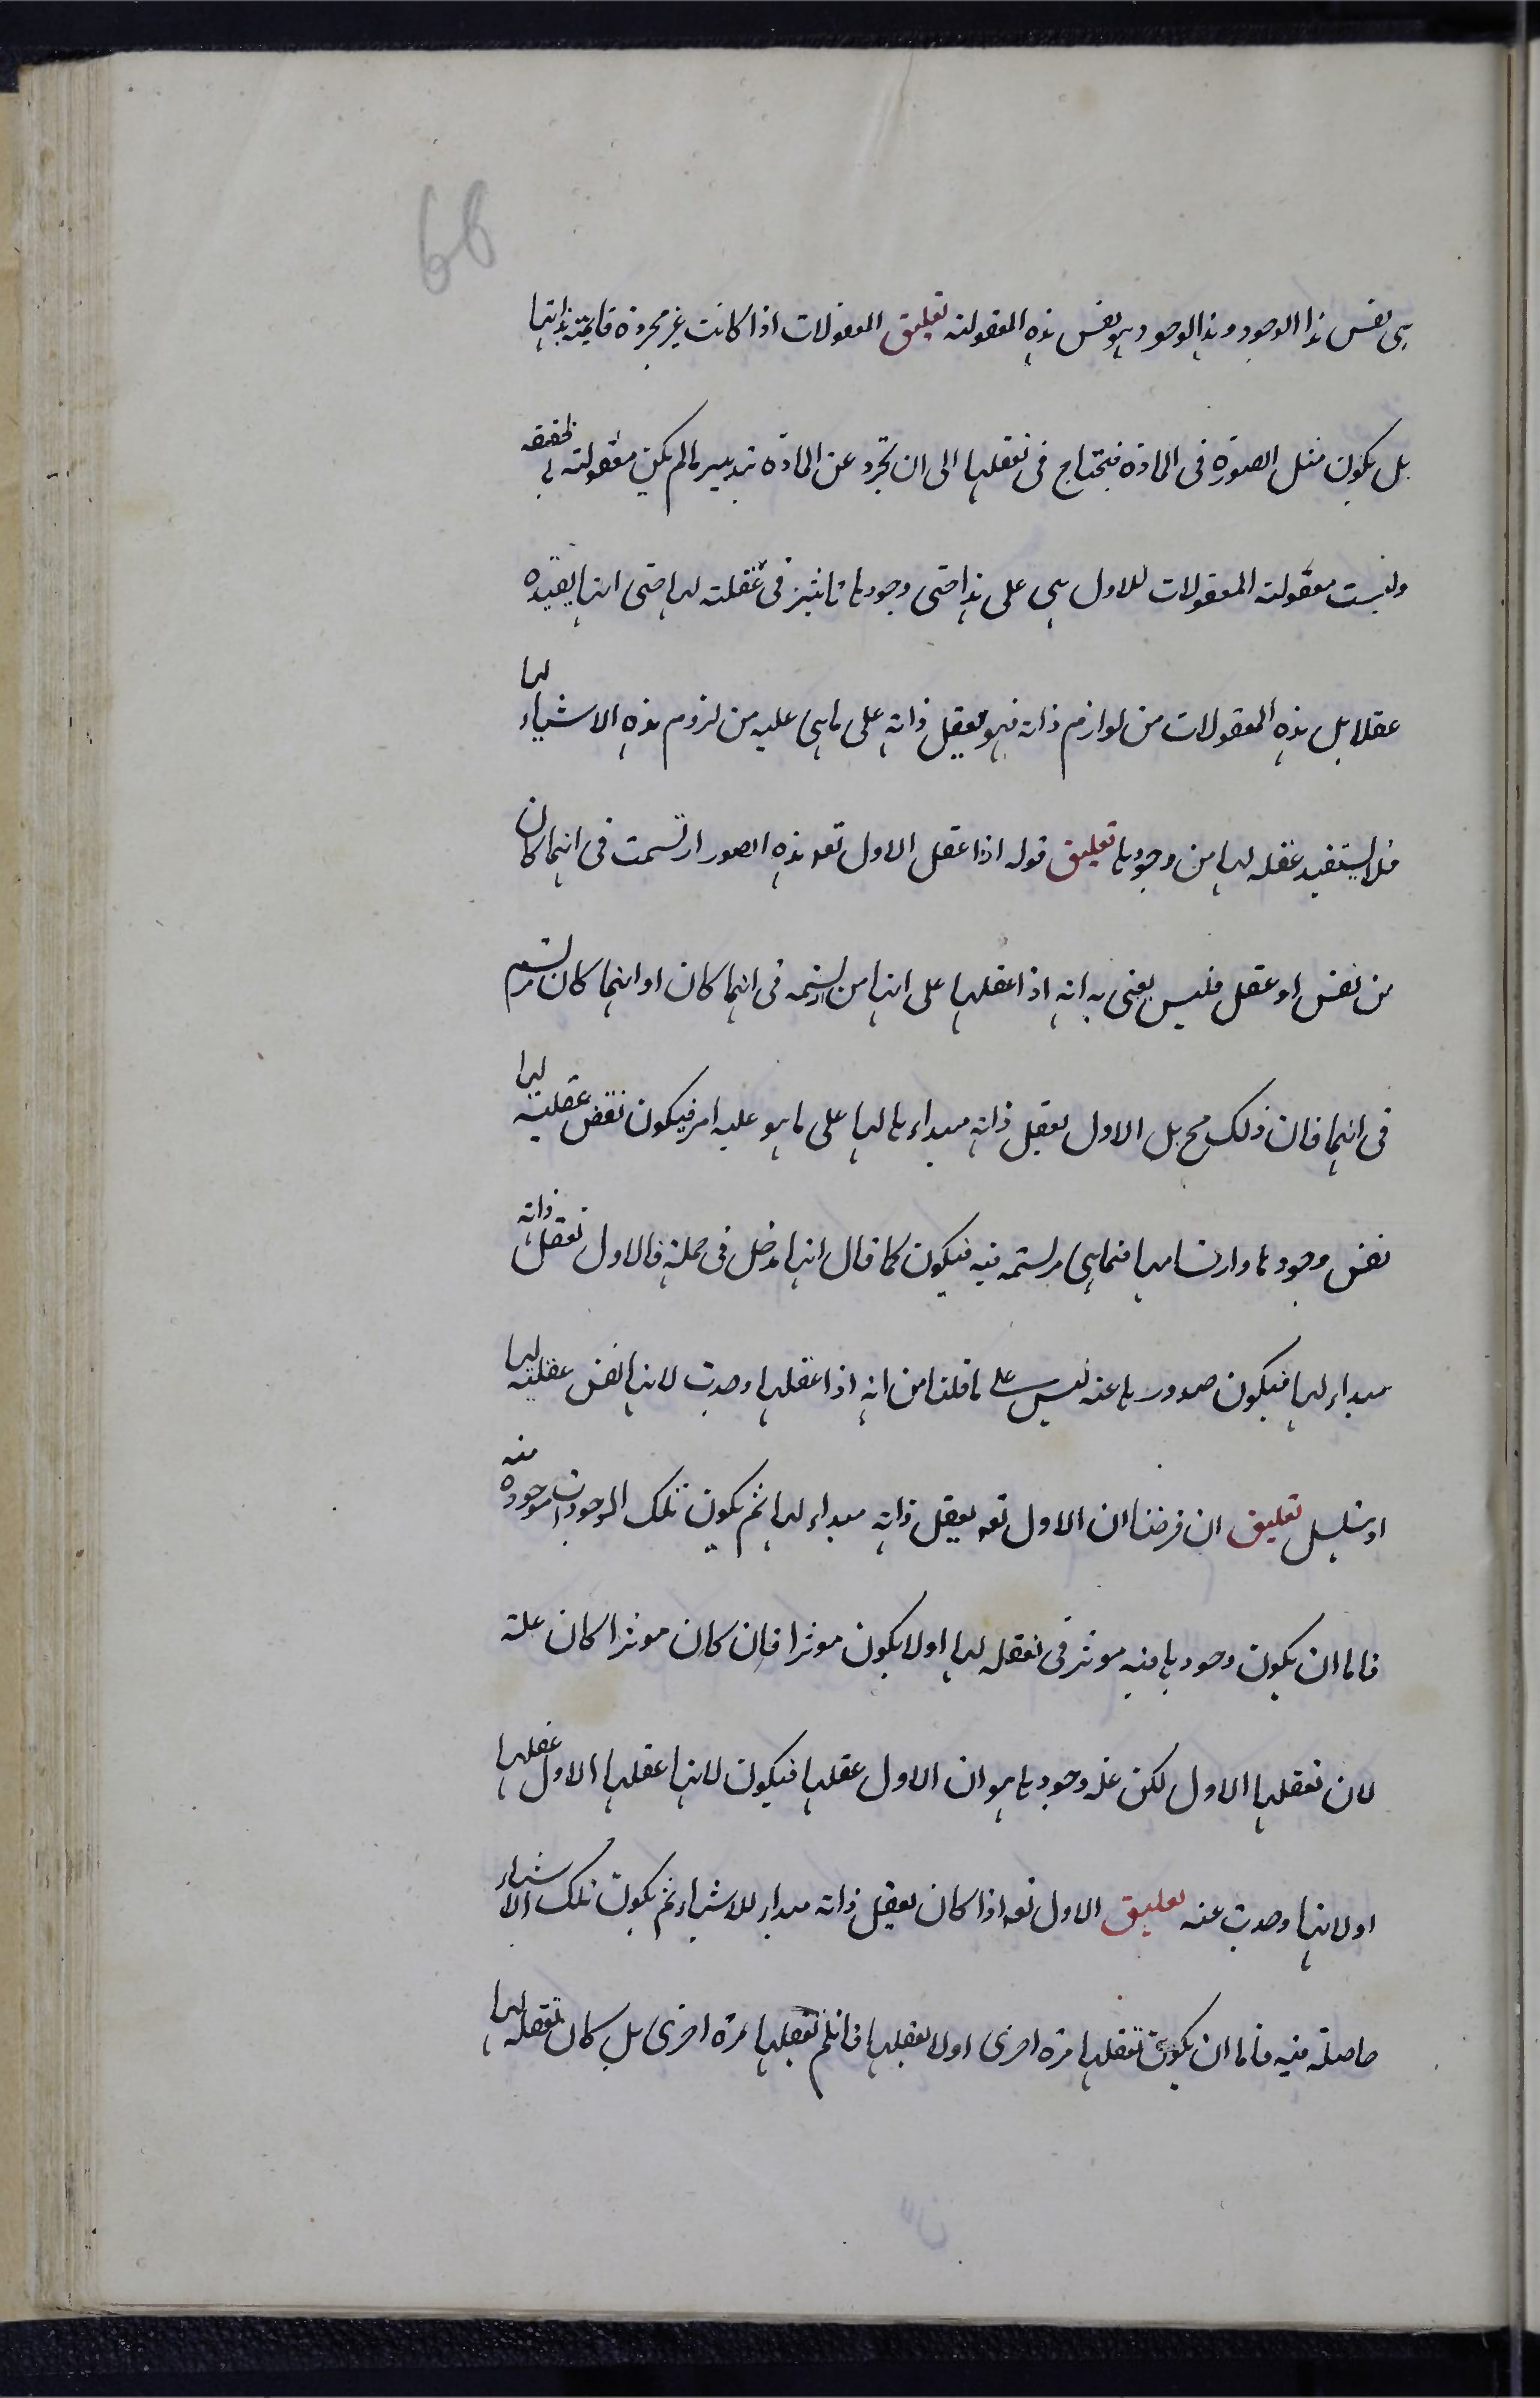 66
هى نفس هذا الوجود وهذا الوجود هو نفس هذه المعقولية تعليق المعقولات اذا كانت غير مجردة قائمة بذاتها
بل يكون مثل الصورة فى المادة فيحتاج فى تعقلها الى ان تجرد عن المادة بتدبير ما لم يكن معقولة بالحقيقة
وليست معقولية المعقولات للاول هى على هذا حتى وجودها تاثير فى عقليته لها حتى انها يفيده
عقلا بل هذه المعقولات من لوازم ذاته فهو يعقل ذاته على ما هى عليه من لزوم هذه الاشياء لها
فلا يستفيد عقله لها من وجودها تعليق قوله اذا عقل الاول تعه هذه الصور ارتسمت فى ايهما كان
من نفس او عقل فليس يعنى به انه اذا عقلها على انها من مرتسمه فى ايهما كان او ايهما كان ترتسم
فى ايهما فان ذلك مح بل الاول يعقل ذاته مبداء ما لها على ما هو عليه امر فيكون نفس عقليته لها
نفس وجودها وارتسامها فيما هى مرتسمه فيه فيكون كما قال انها تدخل فى جملة فالاول تعقل ذاته
مبداء لها فيكون صدورها عنه ليس على ما قلنا من انه اذا عقلها وجدت لانها نفس عقليته لها
او يتسلسل تعليق ان فرضنا ان الاول تعه يعقل ذاته مبداء لها ثم يكون تلك الموجودات موجودة منه
فاما ان يكون وجودها فيه موثر فى تعقله لها او لا يكون موثرا فان كان موثرا كان علة
لان تعقلها الاول لكن علة وجودها هو ان الاول عقلها فيكون لانها عقلها الاول عقلها
او لانها وجدت عنه تعليق الاول تعه اذا كان يعقل ذاته مبداء للاشياء ثم يكون تلك الاشياء
حاصلة فيه فاما ان يكون تعقلها مرة اخرى او لا يعقلها فان لم تعقلها مرة اخرى بل كان تعقله لها